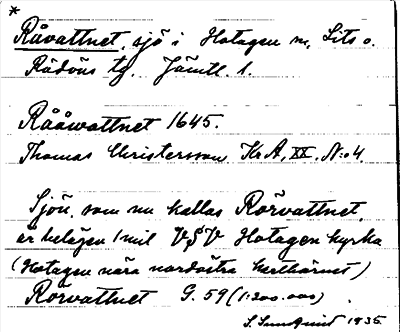 *
Råvattnet, sjö i Hotagen sn, Lits o.
Rödöns tg. Jämtl. l.
Rååwattnet 1645.
Thomas Christersson KrA, XX, N:o 4.
Sjön, som nu kallas Rörvattnet,
är belägen 1 mil VSV Hotagen kyrka
(Hotagen nära nordöstra kartbörnet)
Rörvattnet G. 59 (1:200.000)
1935.